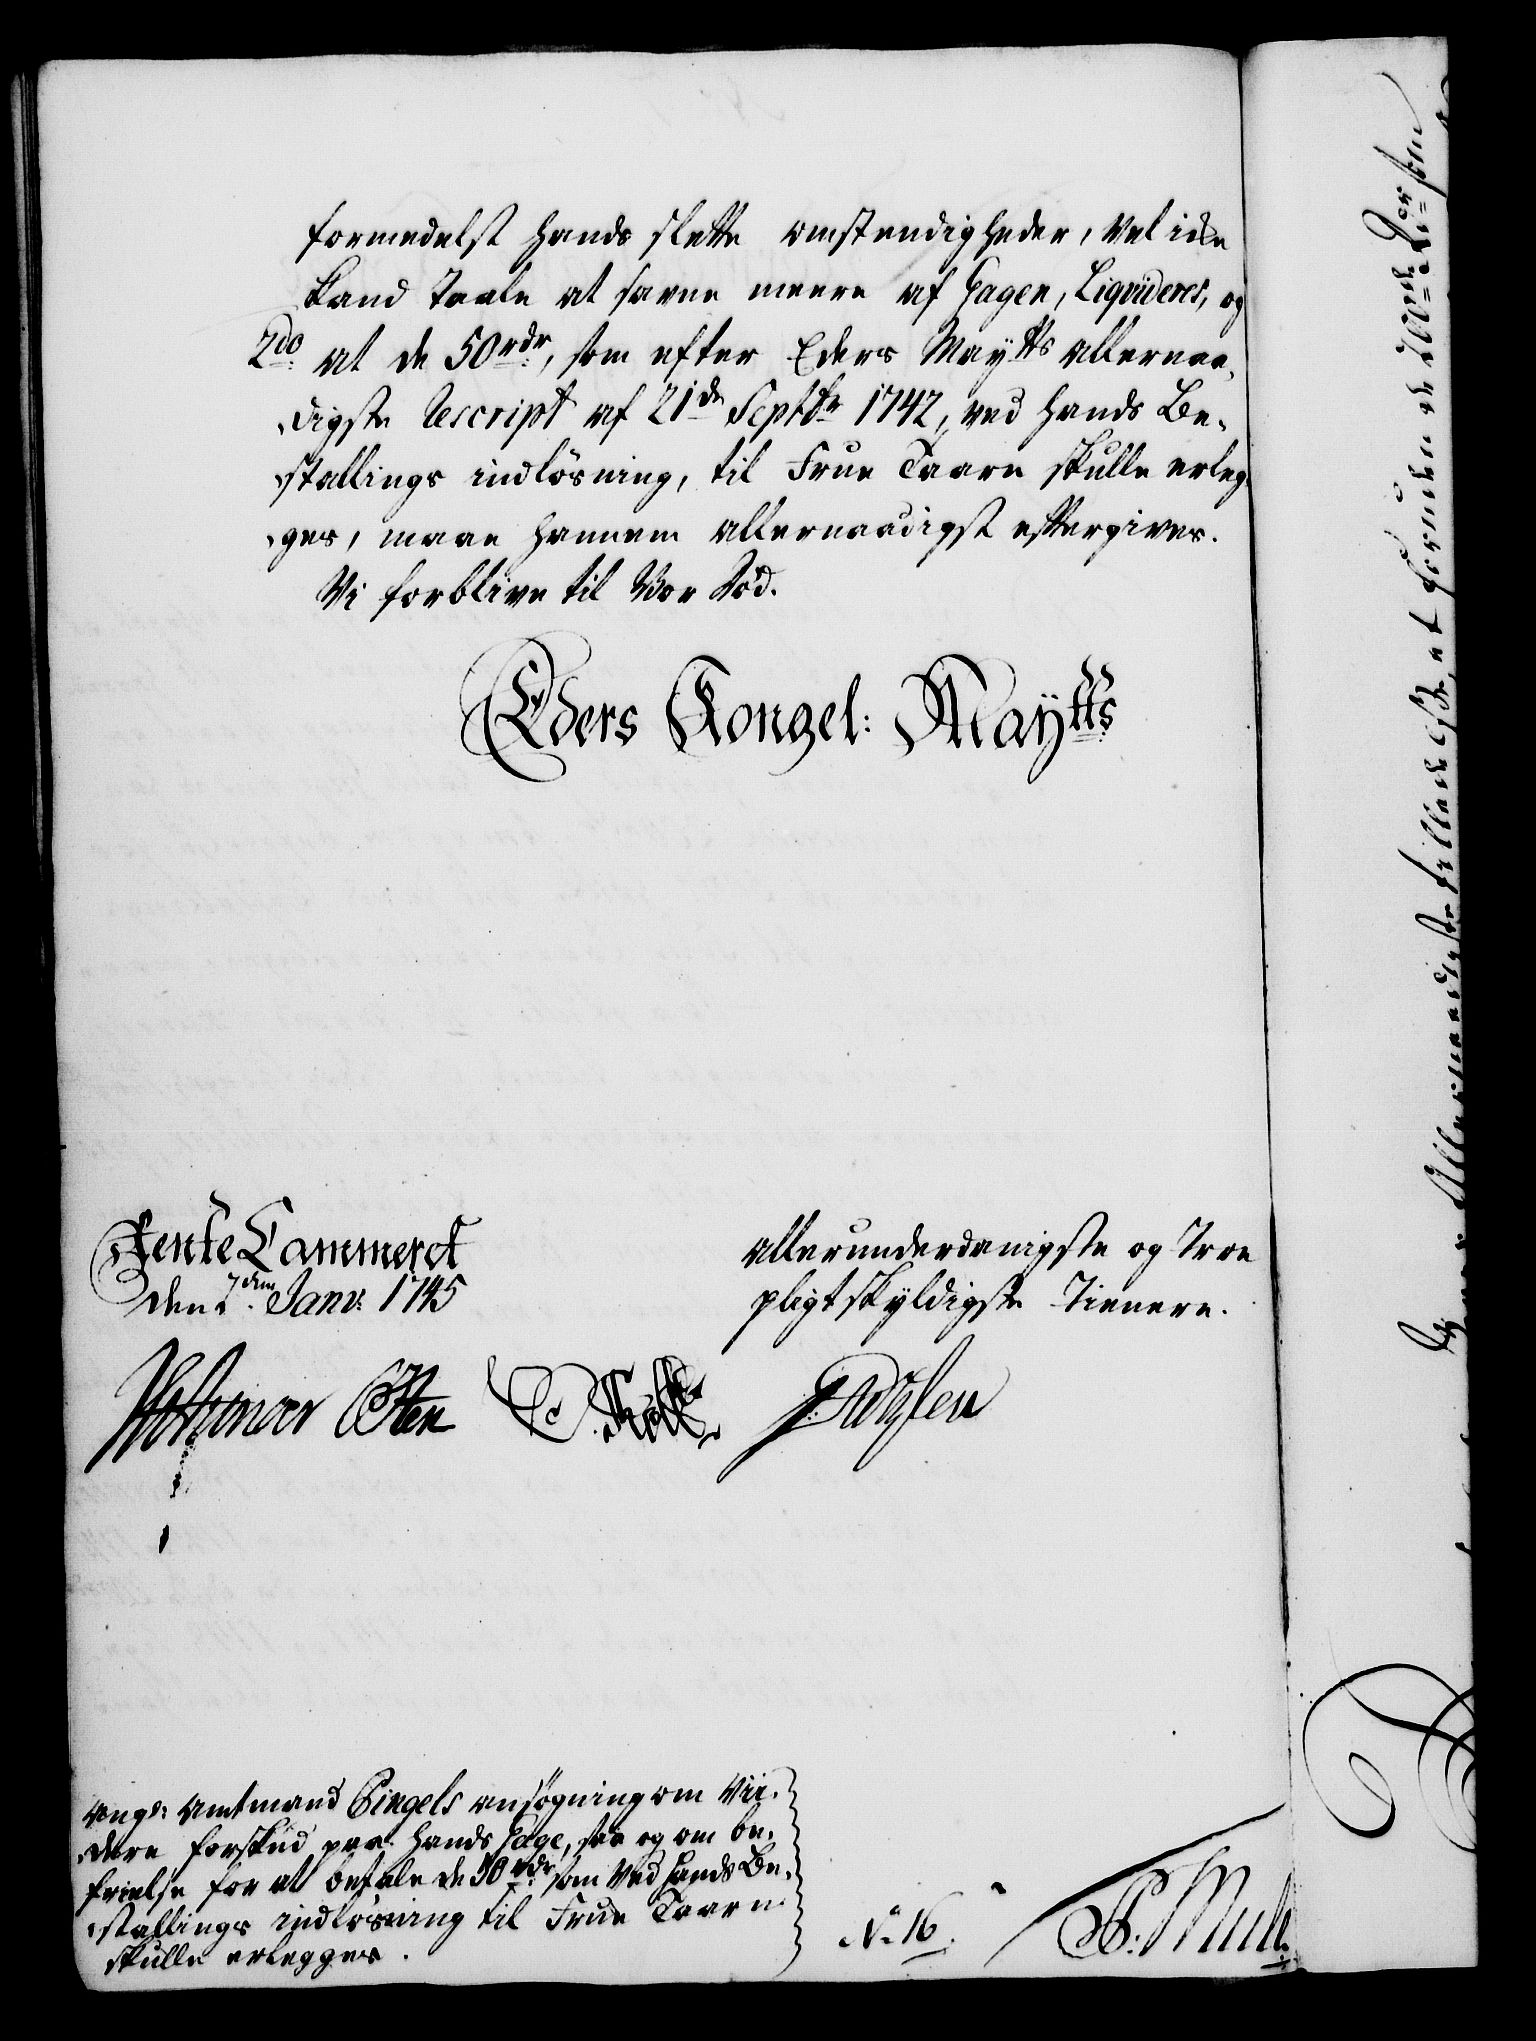 formedelst hands slette omstendigheder, vel icke
kand taale at savne meere af Gagen, Liqvideres, og
2do at de 50 rdr, som efter Eders Maytts allernaa-
digste Rescript af 21de Septbr 1742, ved hands Be-
stallings indlösning, til Frue Taare skulle erleg-
ges, maae hannem allernaadigst efftergives.
Vi forblive til Vor Död.
Eders Kongel: Maytts
Rente Cammeret
den 7dem Janv: 1745
allerunderdanigste og Troe
pligtskyldigste Tienere.
ang: Amtmand Singels ansögning om Vii-
dere forskud paa hands Gage, saa og om be-
frielse for at betale de 50 rdr som ved hands Be-
stallings indlösning til Frue Taare
skulle erlegges.
No 16.